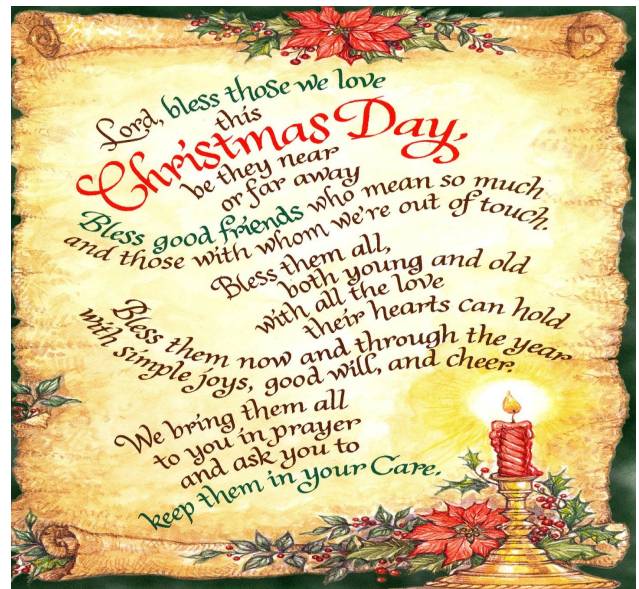 Lord, bless those we love
this
Christmas Day,
be they near
or far away
Bless good friends who mean so much
and those with whom we're out of touch.
Bless them all,
both young and old
with all the love
their hearts can hold
Bless them now and through the year
with simple joys, good will, and cheer.
We bring them all
to you in prayer
and ask you to
keep them in your Care.